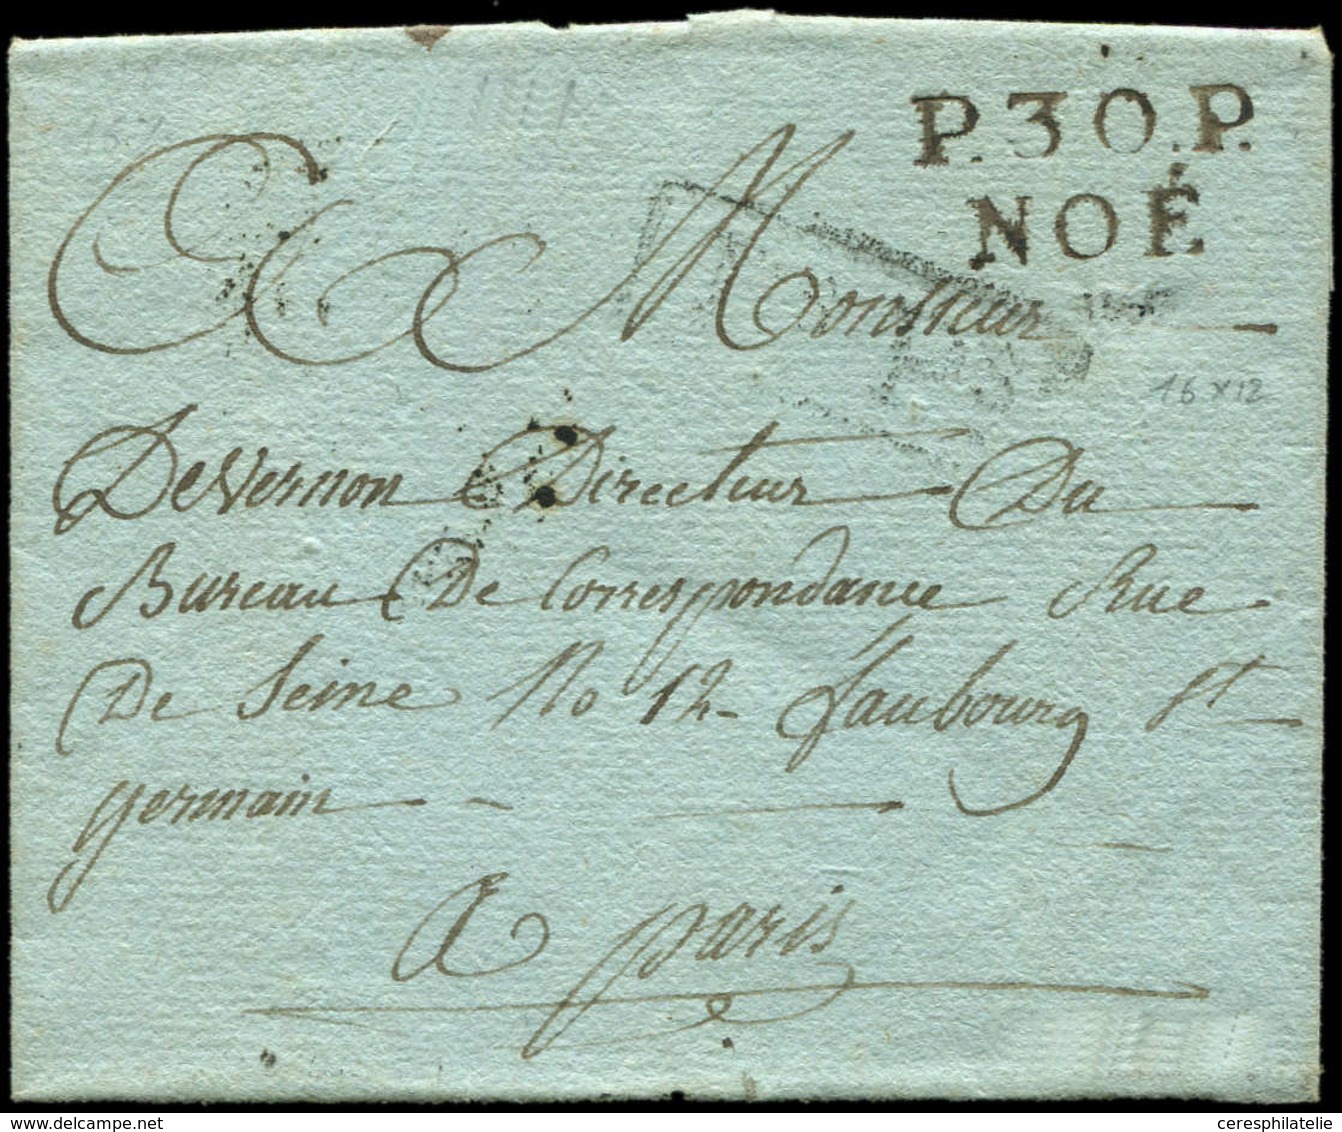 P.30.P.
NOÉ
Monsieur
16 x 12
Devernon Directeur Du
Bureau De Correspondance Rue
De Seine No 12 faubourg St
germain
A paris
delcampe.net
ceresphilatelie